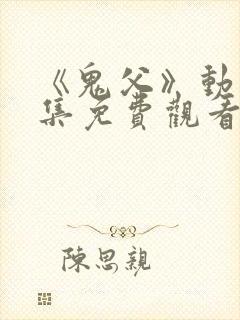 《鬼父》動
集免費觀看
陳思親